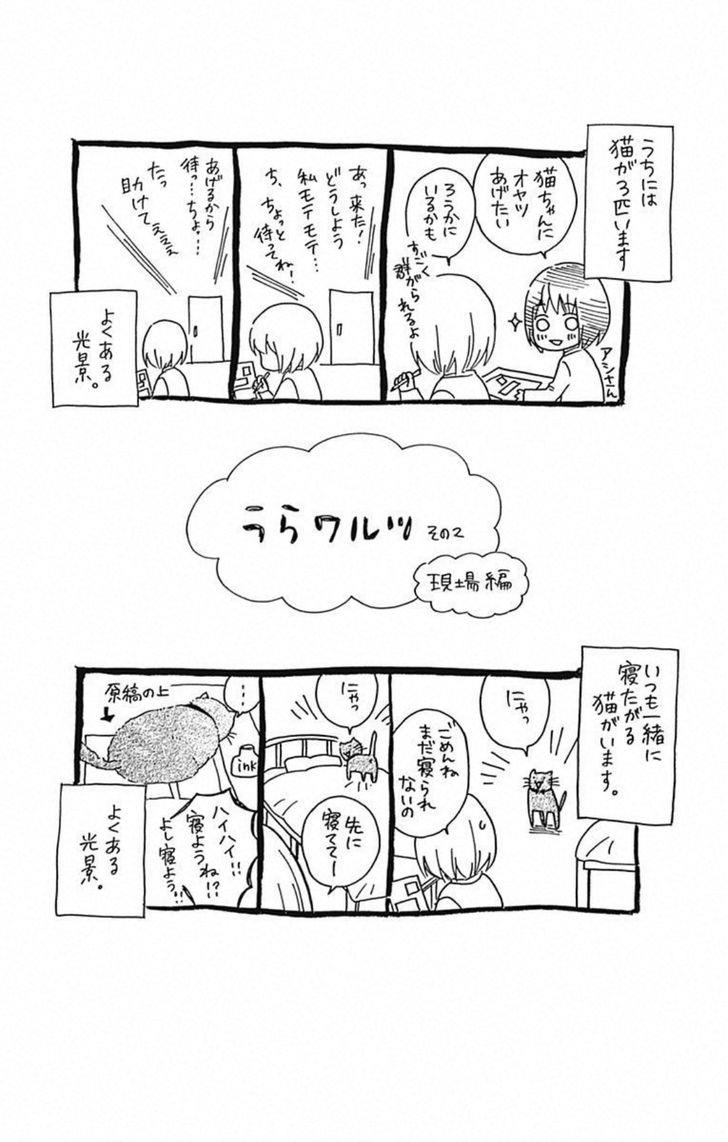 うちには
猫が3匹います
猫ちゃんに
オヤツ
あげたい
ろうかに
いるかも
すごく
群がら
れるよ
アシさん
あっ来た!
どうしよう
私モテモテ…
ち、ちょっと
待ってね!
あげるから
待っ…ちょ…
たっ
助けてぇぇぇ
よくある
光景。
うらワルツ その2
現場編
いつも一緒に
寝たがる
猫がいます。
にゃっ
ごめんね
まだ寝られ
ないの
にゃっ
先に
寝ててー
…
原稿の上
ink
ハイハイ!!
寝ようね!?
よし寝よう!!
よくある
光景。